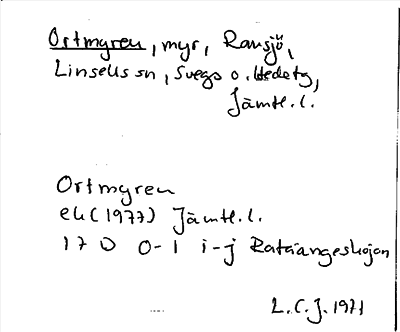 Ortmyren, myr, Ransjö,
Linsells sn, Svegs o. Hedetg,
Jämtl. l.
Ortmyren
ek (1977) Jämtl. l.
17 D 0-1 i-j
L.C.J. 1971